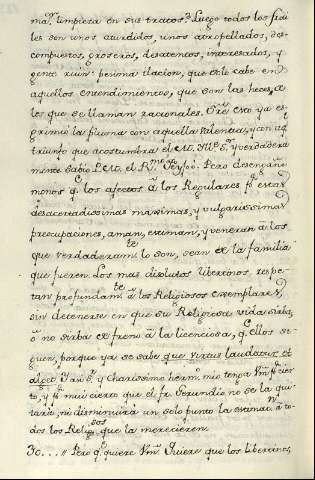 mar. limpieza en sus tratos? Luego todos los frai
les son unos aturdidos, unos atropellados, des
compuestos, groseros, desatentos, interesados, y
gente ruin: pesima ilacion, que solo cabe en
aquellos entendimientos, que son las heces, de
los que se llaman racionales. Otro esto ya es
grimió la pluma con aquella valentia, y con aql
triunfo que acostumbra el M.tro y verdadera
mente Sabio P. M.tro el R.mo Feyjoó. Pero desengañe
monos q.e los afectos à los Regulares p.r estas
desacreditadissimas maximas, y vulgarissimas
preocupaciones, aman, estiman, y veneran à los
que verdaderam.te lo son, sean de la familia
que fueren. Los mas disolutos libertinos respe
tan profundam.te à los Religiosos exemplares,
sin detenerse en que su Religiosa vida sirba,
ò no sirba de freno à la licenciosa, q.e ellos si
guen, porque ya se sabe que virtus laudatur, et
alget. Pan S.r, y Charissimo herm.o mio tenga Vm. p.r cier
to, y p.r mui cierto que el fr. Gerundio no se la qui
taria, ni disminuirá un solo punto la estimac.n à to
dos los Relig.sos que la merecieren.
30.... Pero q.e quiere Vm.? Quiere que los libertinos,